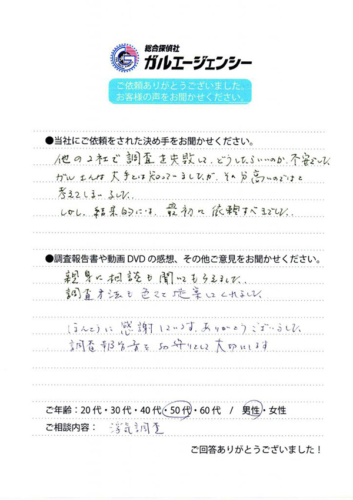 総合探偵社
ガルエージェンシー
ご依頼ありがとうございました。
お客様の声をお聞かせください。
●当社にご依頼をされた決め手をお聞かせください。
他の2社で調査を失敗して、どうしたらいいのか、不安でした。
ガルさんは大手とは知っていましたが、その分高いのではと
考えてしまいました。
しかし、結果的には、最初に依頼すべきでした。
●調査報告書や動画DVDの感想、その他ご意見をお聞かせください。
親身に相談も聞いてもらえました。
調査方法も色々と提案してくれました。
ほんとうに感謝しています。ありがとうございました。
調査報告書をお守りとして大切にします
ご年齢:20代・30代・40代・50代・60代 / 男性・女性
ご相談内容: 浮気調査
ご回答ありがとうございました!